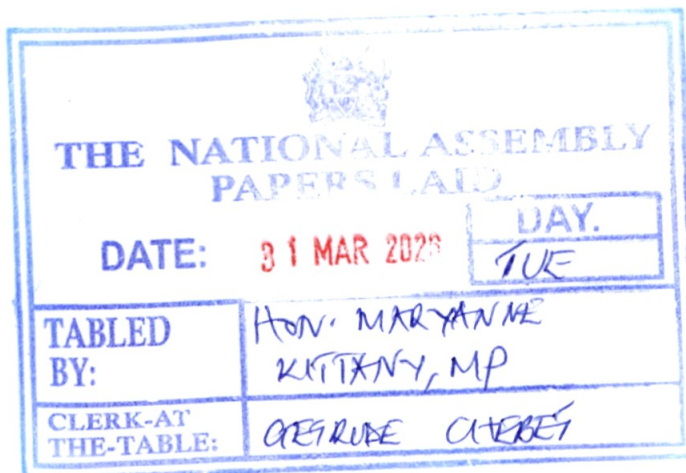 THE NATIONAL ASSEMBLY
PAPERS LAID
DATE: 31 MAR
DAY.
TUE
TABLED BY: HON. MARYANNE
KITTANY, MP
CLERK-AT
THE-TABLE: CHEBET